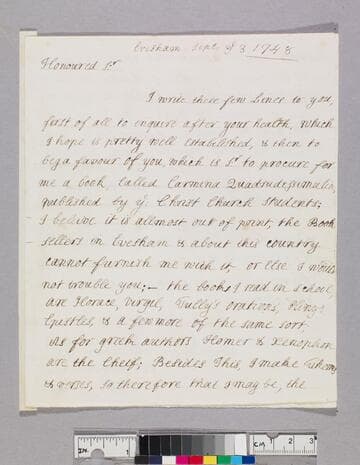 Evesham Septr ye 3 1748
Honoured Sr
I write these few Lines to you,
first of all to enquire after your health, which
I hope is pretty well established, & then to
beg a favour of you, which is Sr to procure for
me a book, called Carmina Quadragesimalia,
published by ye Christ Church Students;
I beleive it is allmost out of print, the Book
sellers in Evesham & about this country
cannot furnish me with it, or else I would
not trouble you;- the books I read in school,
are Horace, Virgil, Tully's orations, Pliny's
Epistles, & a few more of the same sort,
As for greek authors Homer & Xenophon
are the Cheif; Besides This, I make Themes
& verses, So therefore that I may be, the
IN
1
2
CM
1
2
3